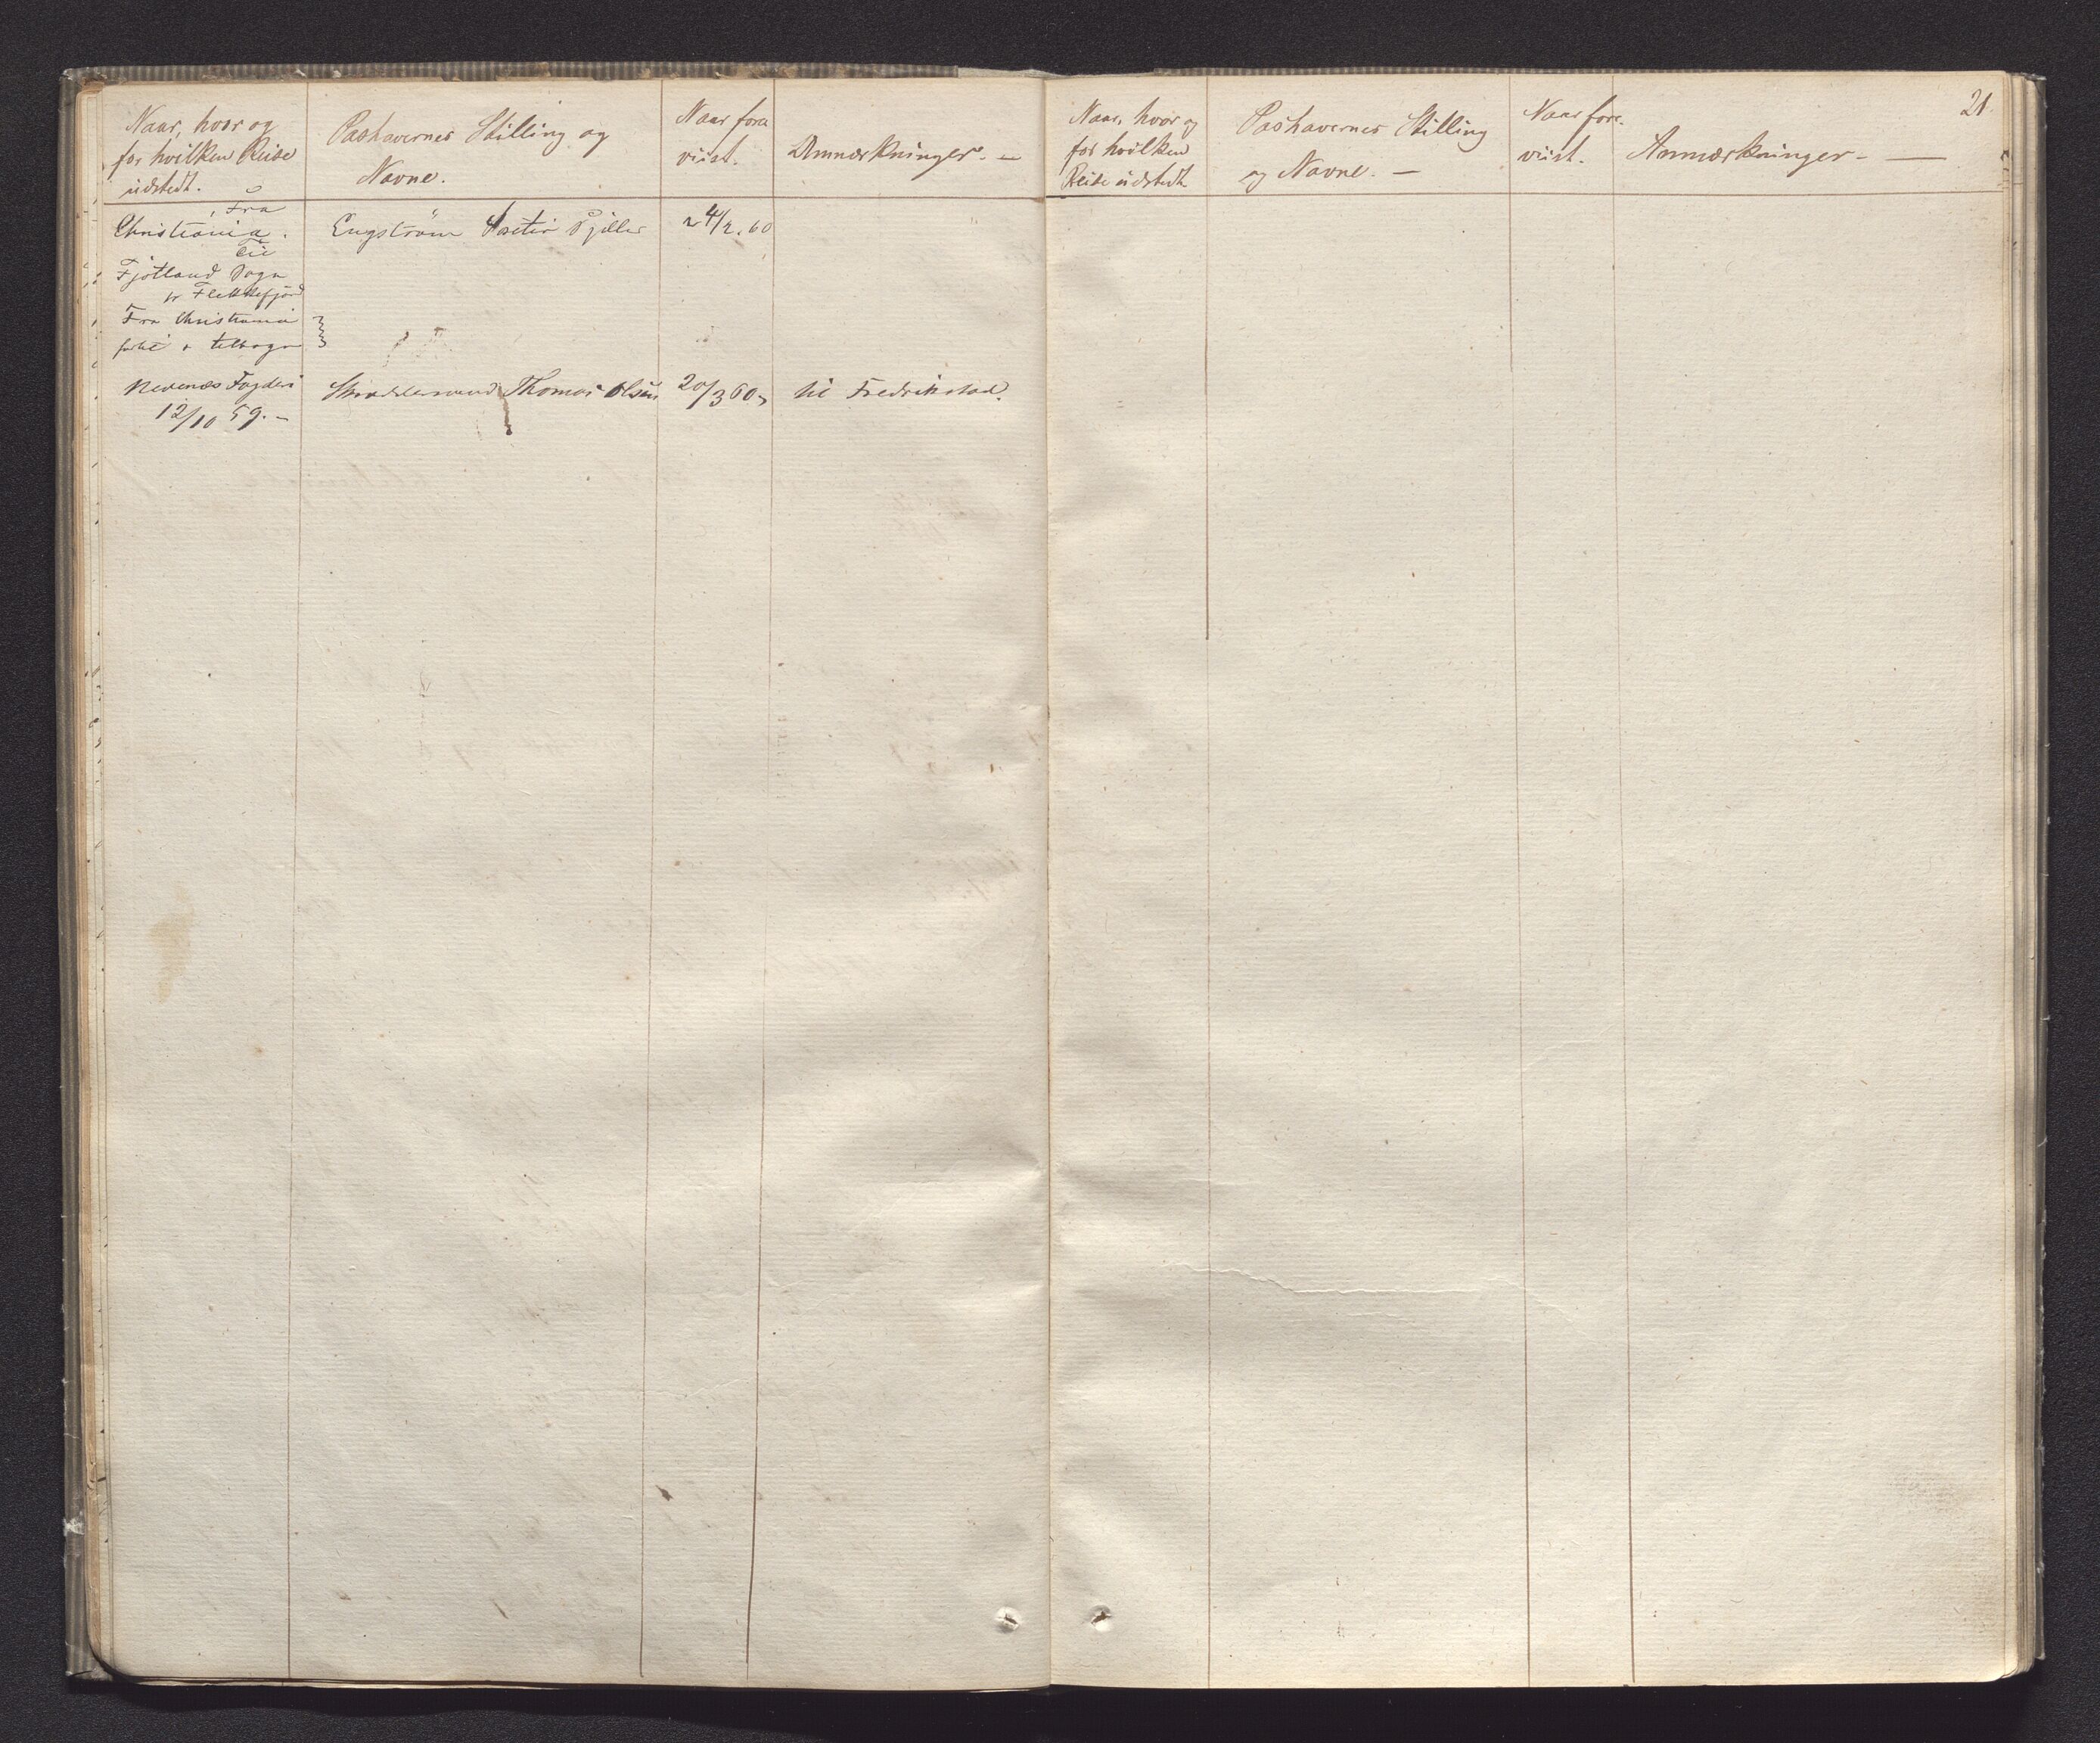 Naar, hvor og
for hvilken Reise
udstedt.
Pashavernes Stilling og
Navne.
Naar fore
viist.
Anmærkninger. —
Fra
Christiania.
Til
Fjotland Sogn
pr Flekkefjord
Fra Christiania
Engström
24/2. 60
Nedenæs Fogderi
12/10 59. —
Thomas Olsen
20/3 60.
til Fredrikstad.
21.
Naar, hvor og
for hvilken
Reise udstedt
Pashavernes Stilling
og Navne. —
Naar fore.
viist.
Anmærkninger — —